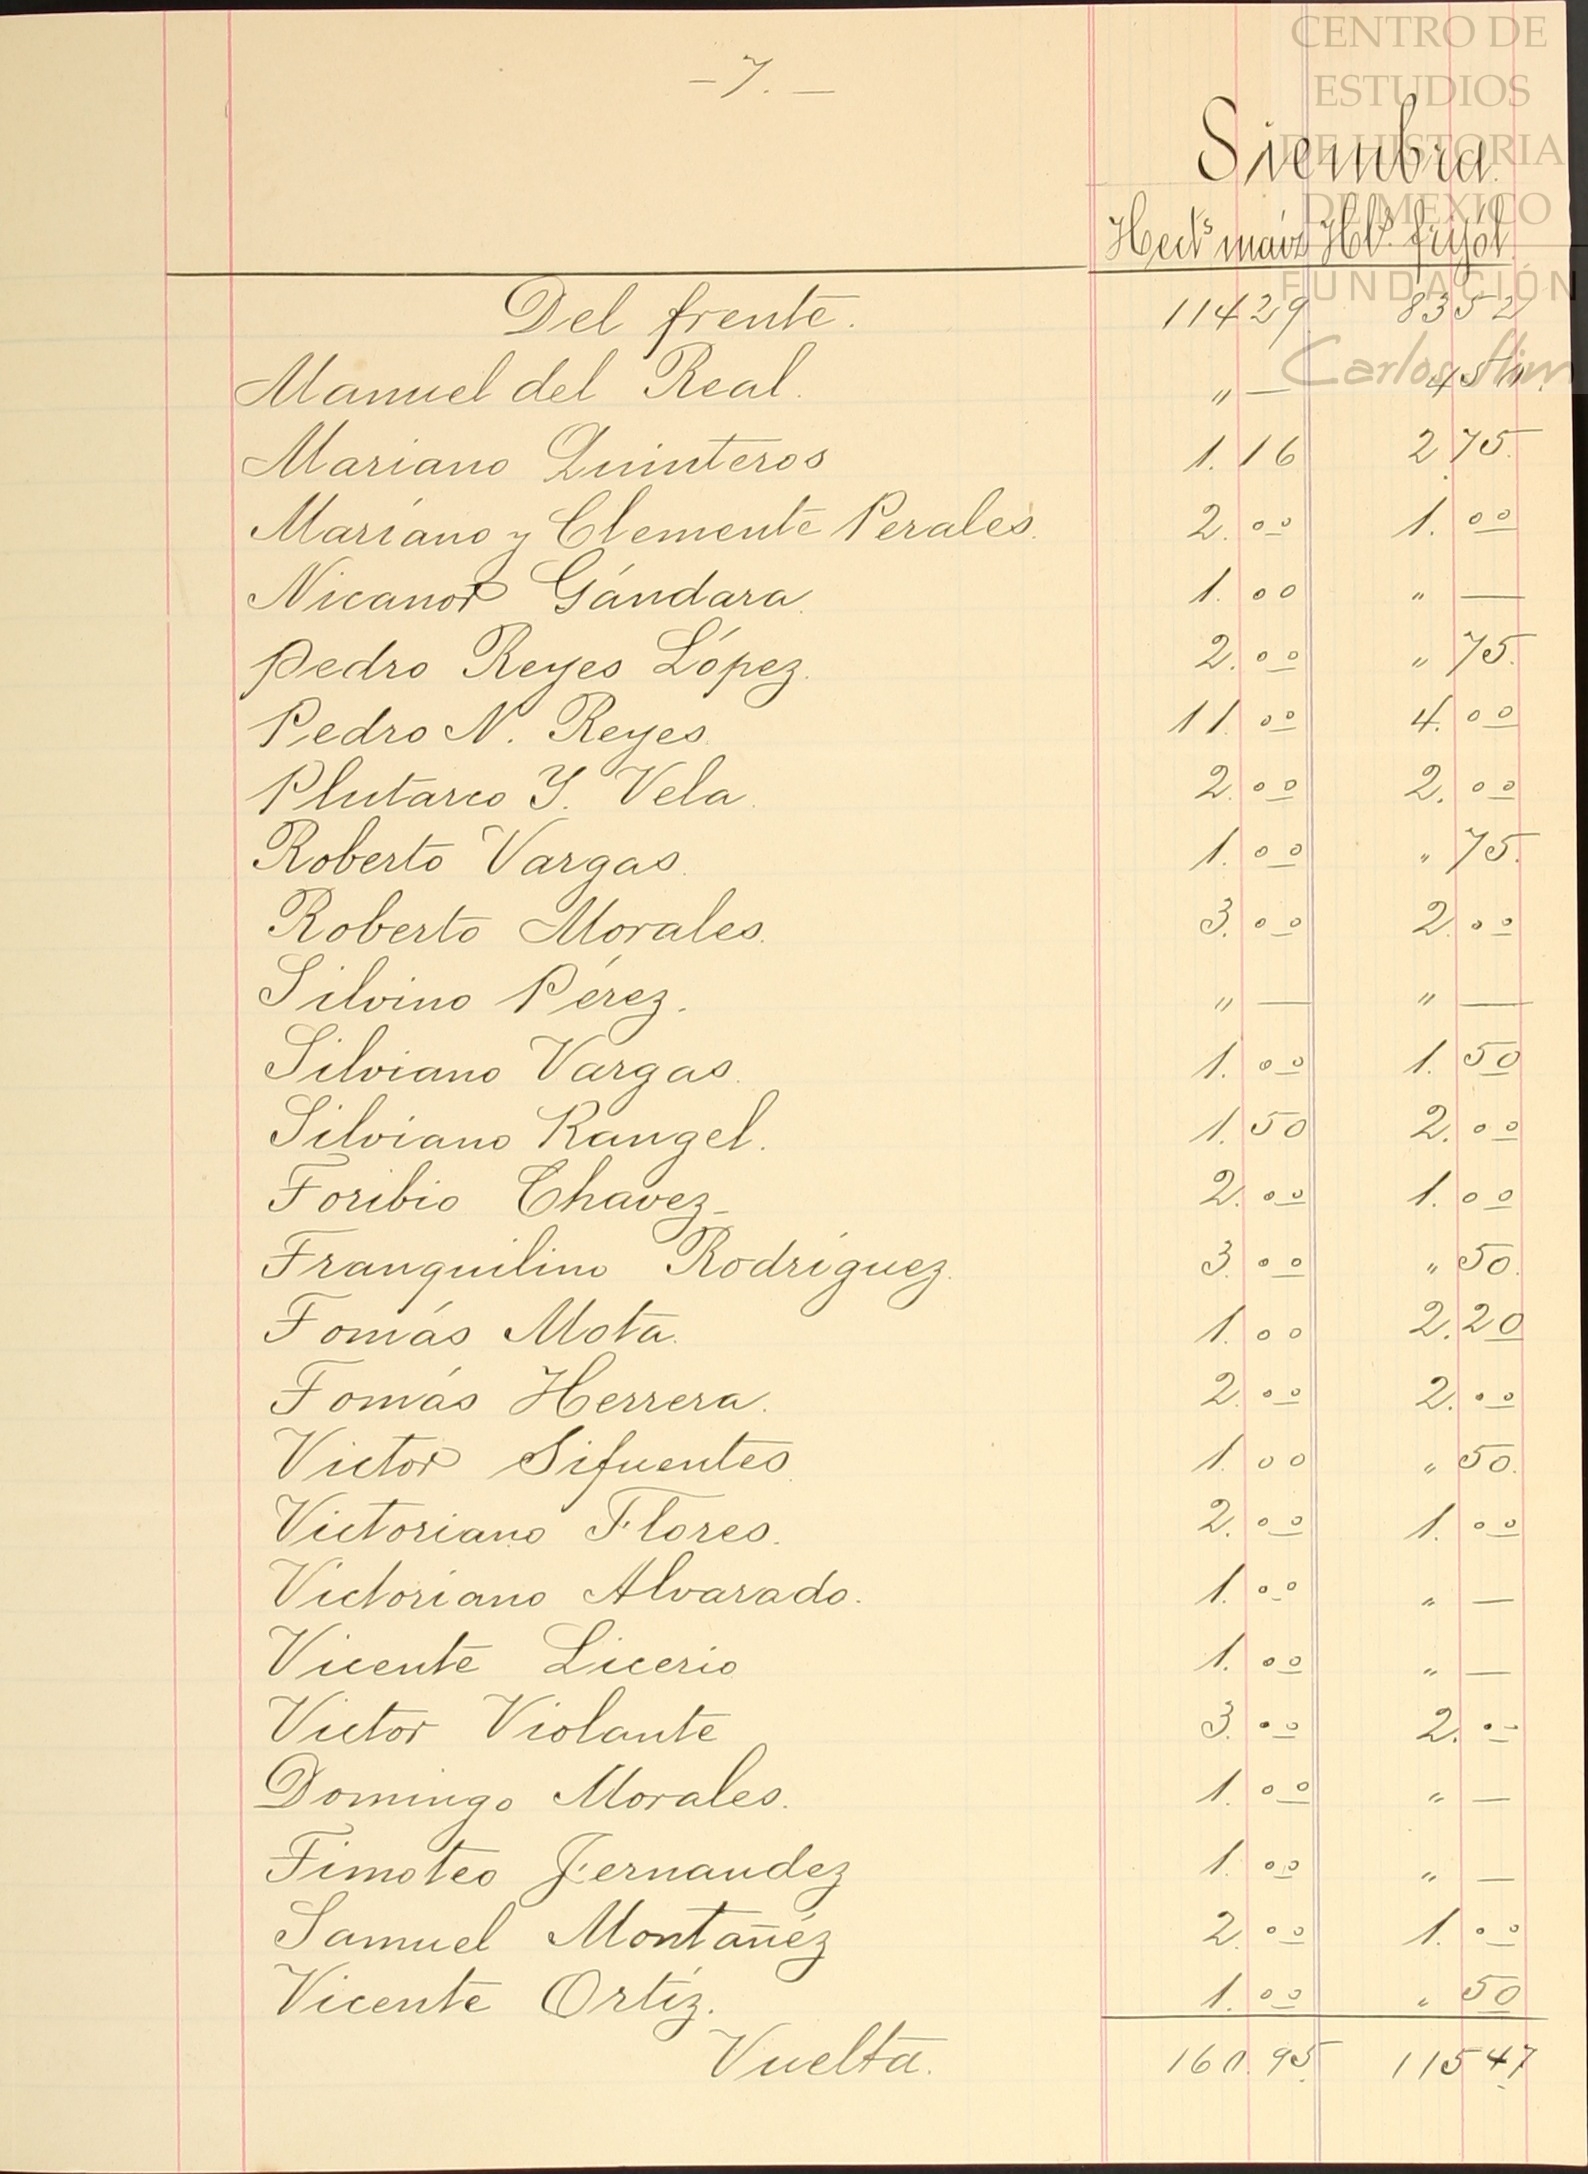 CENTRO DE
ESTUDIOS
DE HISTORIA
DE MEXICO
FUNDACIÓN
Carlos Slim
- 7. -
Siembra.
Hects maiz Hls. frijól
Del frente. 114 29 83 52
Manuel del Real. " — 4 5"
Mariano Quinteros 1. 16 2 75.
Mariano y Clemente Perales. 2. 00 1. 00
Nicanor Gándara. 1. 00 " —
Pedro Reyes López. 2. 00 " 75.
Pedro N. Reyes. 11. 00 4. 00
Plutarco Y. Vela. 2. 00 2. 00
Roberto Vargas. 1. 00 " 75.
Roberto Morales. 3. 00 2. 00
Silvino Pérez. " — " —
Silviano Vargas. 1. 00 1. 50
Silviano Rangel. 1. 50 2. 00
Toribio Chavez- 2. 00 1. 00
Tranquilino Rodríguez. 3. 00 " 50.
Tomás Mota. 1. 00 2. 20
Tomás Herrera. 2. 00 2. 00
Victor Sifuentes. 1. 00 " 50.
Victoriano Flores. 2. 00 1. 00
Victoriano Alvarado. 1. 00 " —
Vicente Licerio 1. 00 " —
Victor Violante 3. 00 2. 00
Domingo Morales. 1. 00 " —
Timoteo Fernandez 1. 00 " —
Samuel Montañéz 2. 00 1. 00
Vicente Ortíz. 1. 00 " 50
Vuelta. 160. 95. 115 47